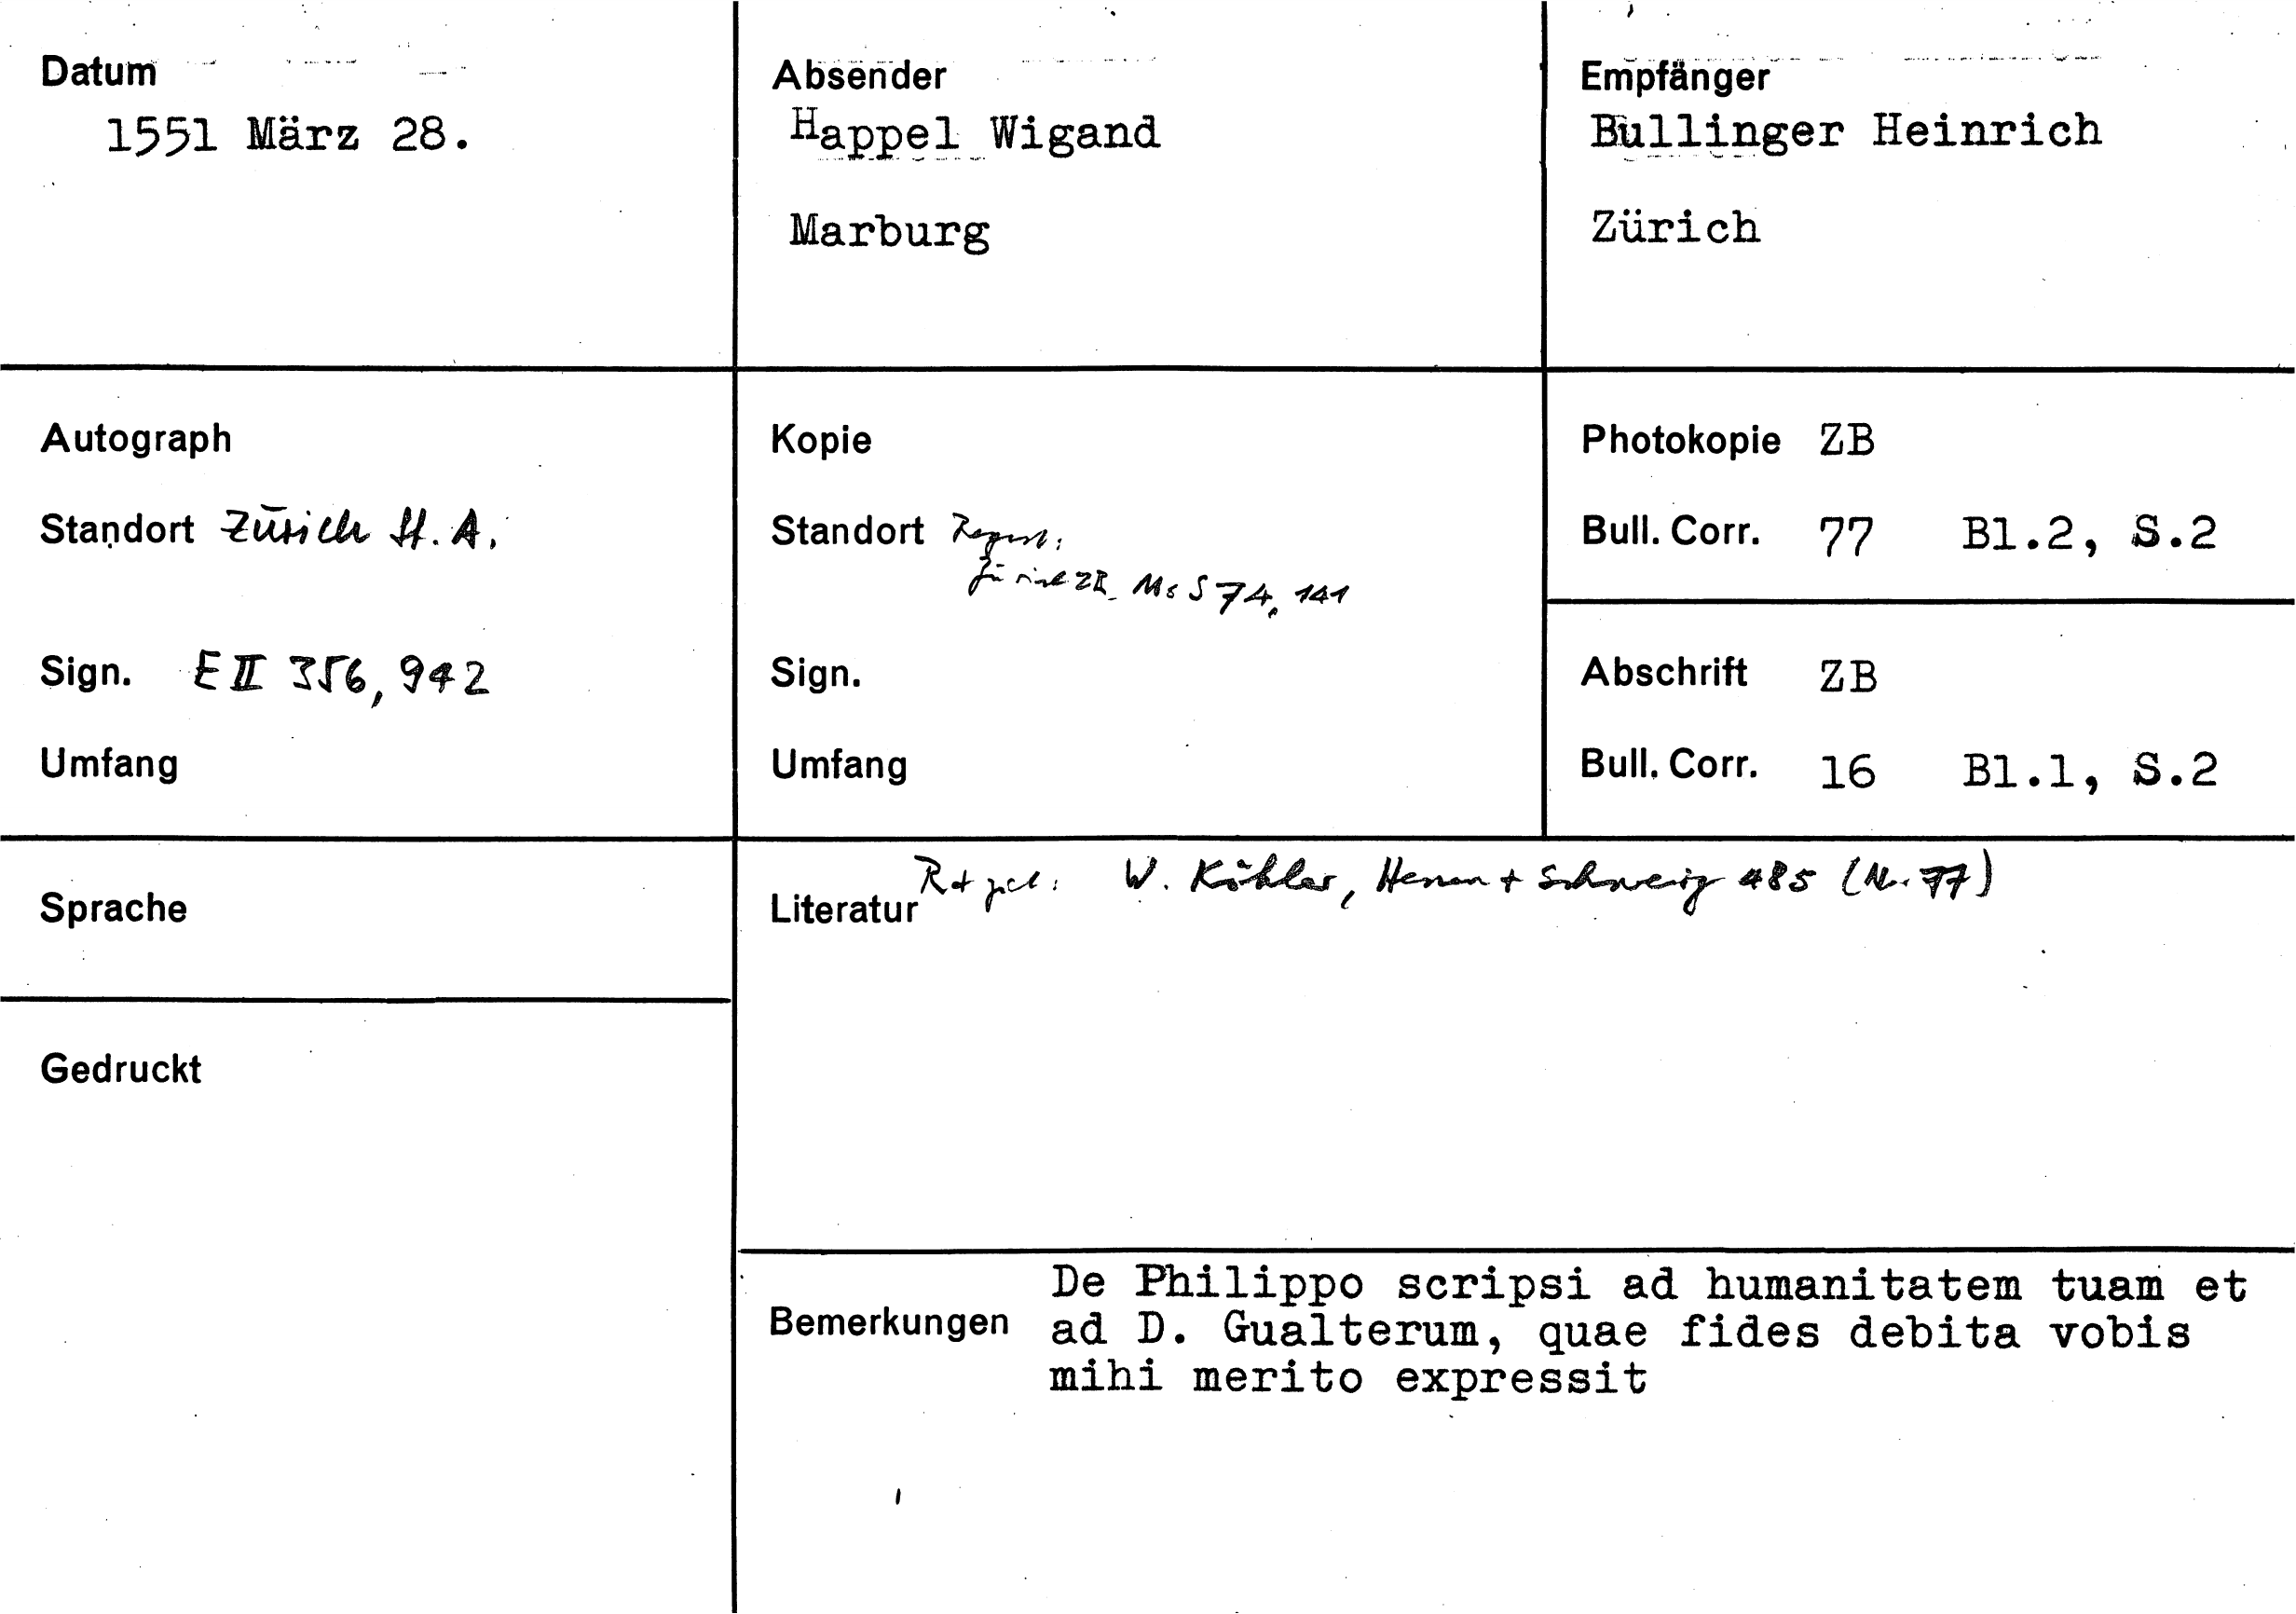 Datum
1551 März 28.
Absender
Happel Wigand
Marburg
Empfänger
Bullinger Heinrich
Zürich
Autograph
Standort Zürich St. A.
Sign. E II 356, 942
Umfang
Kopie
Standort Regest:
Zürich ZB Ms S 74, 141
Sign.
Umfang
Photokopie ZB
Bull. Corr. 77 Bl.2, S.2
Abschrift ZB
Bull. Corr. 16 Bl.1, S.2
Sprache
Gedruckt
Literatur W. Köhler, Hessen + Schweiz 485 (Nr. 77)
Bemerkungen
De Philippo scripsi ad humanitatem tuam et
ad D. Gualterum, quae fides debita vobis
mihi merito expressit